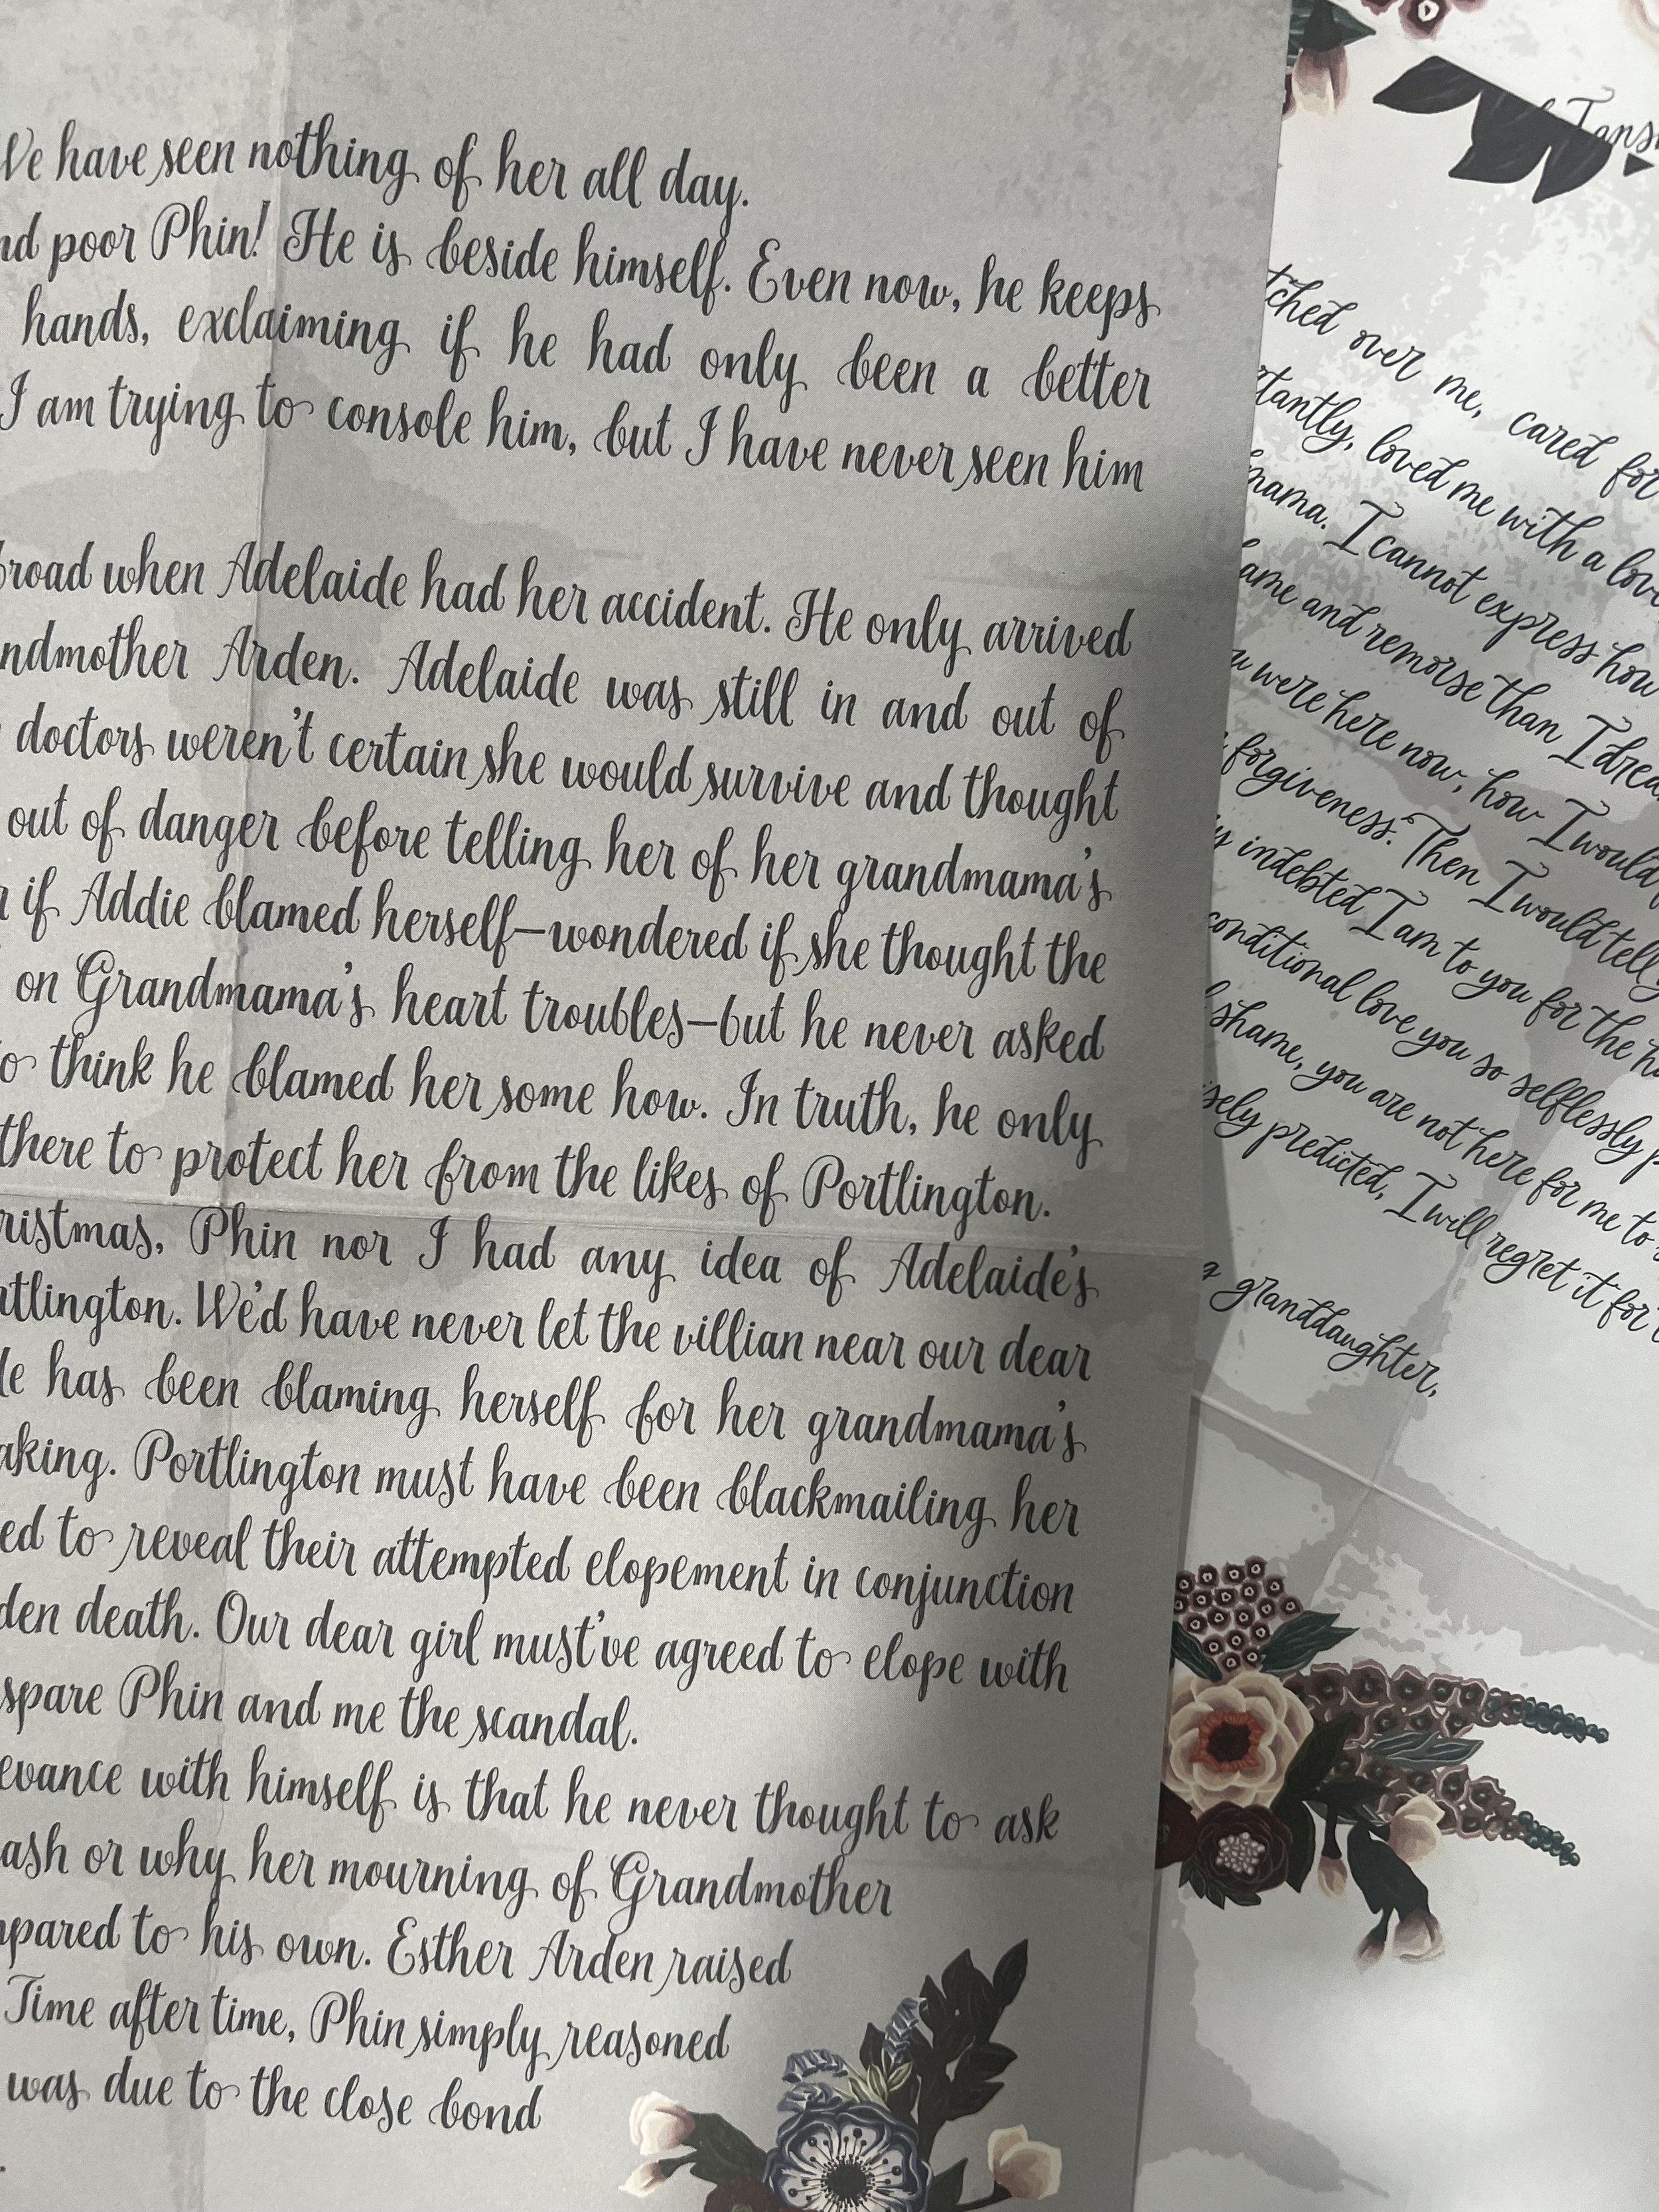 have seen nothing of her all day.
poor Phin! He is beside himself. Even now, he keeps
hands, exclaiming if he had only been a better
I am trying to console him, but I have never seen him
when Adelaide had her accident. He only arrived
Arden. Adelaide was still in and out of
doctors weren't certain she would survive and thought
out of danger before telling her of her grandmama's
if Addie blamed herself—wondered if she thought the
on Grandmama's heart troubles—but he never asked
think he blamed her some how. In truth, he only
there to protect her from the likes of Portlington.
Phin nor I had any idea of Adelaide's
We'd have never let the villian near our dear
has been blaming herself for her grandmama's
Portlington must have been blackmailing her
to reveal their attempted elopement in conjunction
death. Our dear girl must've agreed to elope with
spare Phin and me the scandal.
with himself is that he never thought to ask
or why her mourning of Grandmother
to his own. Esther Arden raised
Time after time, Phin simply reasoned
was due to the close bond
over me, cared for
loved me with a
I cannot express how
and remorse than I
were here now, how I would
forgiveness. Then I would tell
indebted I am to you for the
love you so selflessly
shame, you are not here for me to
predicted, I will regret it for
granddaughter,